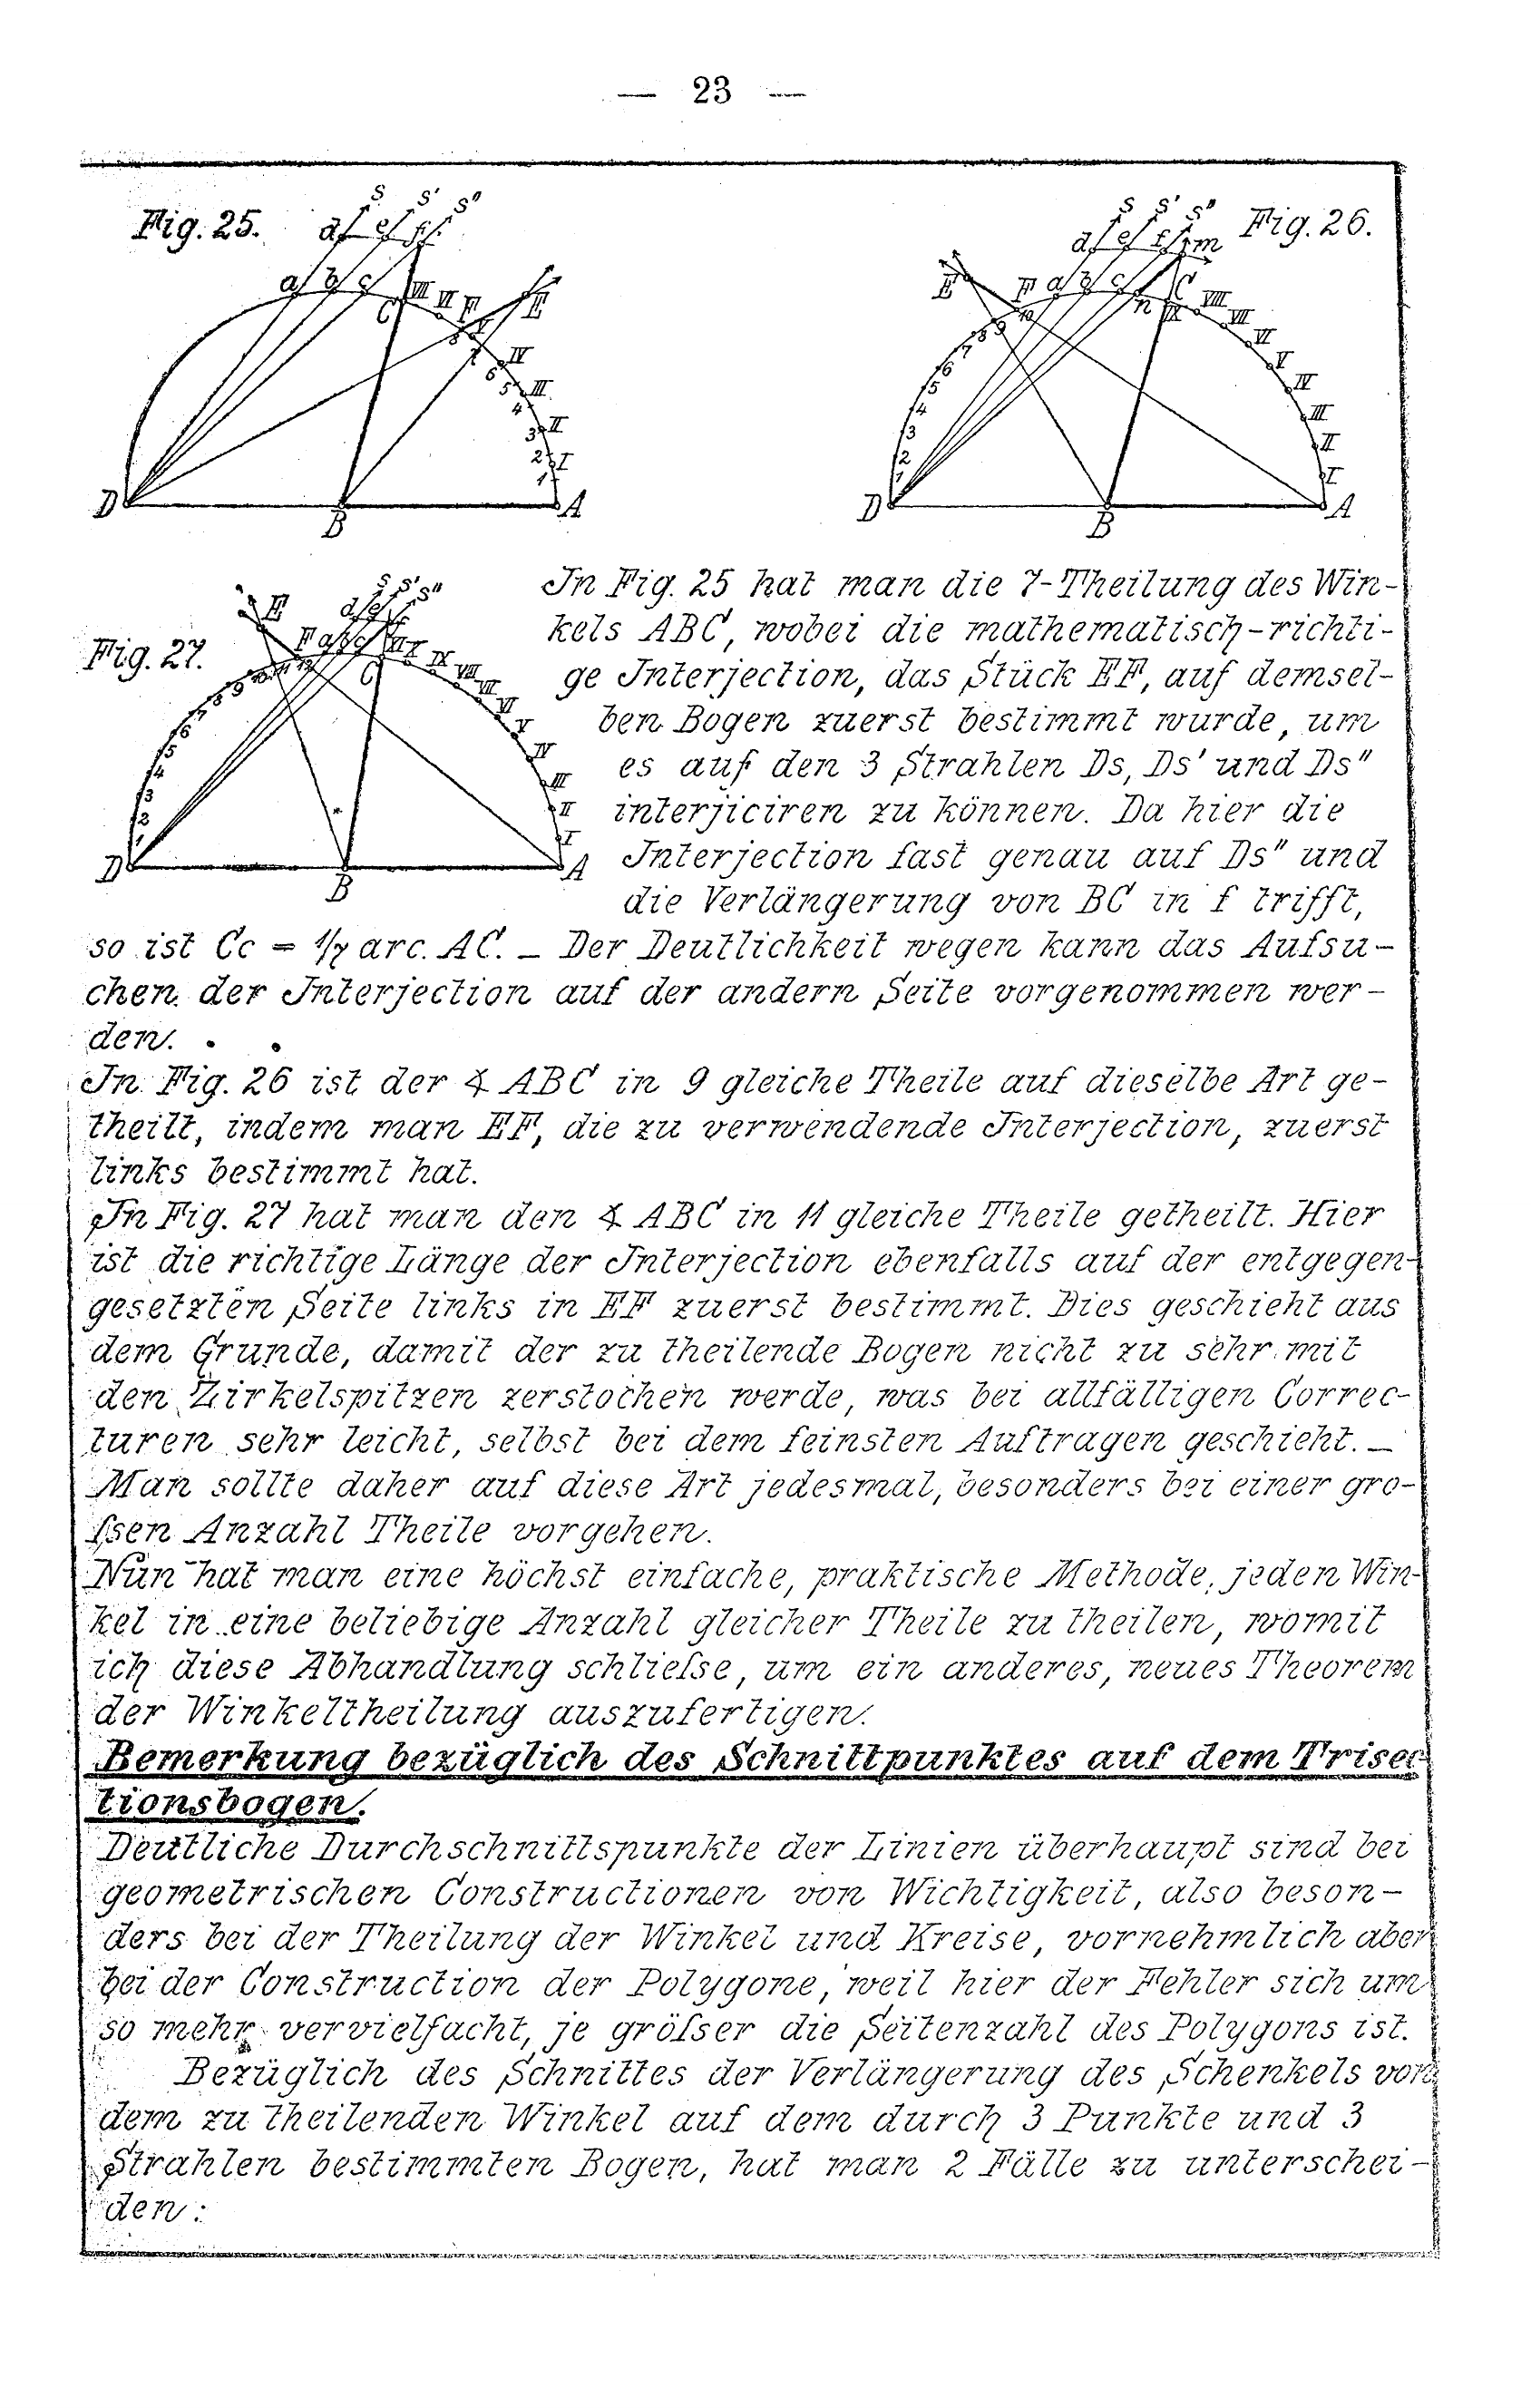 — 23 —
Fig. 25.
Fig. 26.
Fig. 27.
In Fig. 25 hat man die 7-Theilung des Win-
kels ABC, wobei die mathematisch-richti-
ge Interjection, das Stück EF, auf demsel-
ben Bogen zuerst bestimmt wurde, um
es auf den 3 Strahlen Ds, Ds' und Ds"
interjiciren zu können. Da hier die
Interjection fast genau auf Ds" und
die Verlängerung von BC in f trifft,
so ist Cc = 1/7 arc. AC. _ Der Deutlichkeit wegen kann das Aufsu-
chen der Interjection auf der andern Seite vorgenommen wer-
den.
In Fig. 26 ist der ∢ ABC in 9 gleiche Theile auf dieselbe Art ge-
theilt, indem man EF, die zu verwendende Interjection, zuerst
links bestimmt hat.
In Fig. 27 hat man den ∢ ABC in 11 gleiche Theile getheilt. Hier
ist die richtige Länge der Interjection ebenfalls auf der entgegen-
gesetzten Seite links in EF zuerst bestimmt. Dies geschieht aus
dem Grunde, damit der zu theilende Bogen nicht zu sehr mit
den Zirkelspitzen zerstochen werde, was bei allfälligen Correc-
turen sehr leicht, selbst bei dem feinsten Auftragen geschieht. _
Man sollte daher auf diese Art jedesmal, besonders bei einer gro-
ſsen Anzahl Theile vorgehen.
Nun hat man eine höchst einfache, praktische Methode, jeden Win-
kel in eine beliebige Anzahl gleicher Theile zu theilen, womit
ich diese Abhandlung schlieſse, um ein anderes, neues Theorem
der Winkeltheilung auszufertigen.
Bemerkung bezüglich des Schnittpunktes auf dem Trisec
tionsbogen.
Deutliche Durchschnittspunkte der Linien überhaupt sind bei
geometrischen Constructionen von Wichtigkeit, also beson-
ders bei der Theilung der Winkel und Kreise, vornehmlich aber
bei der Construction der Polygone, weil hier der Fehler sich um
so mehr vervielfacht, je gröſser die Seitenzahl des Polygons ist.
Bezüglich des Schnittes der Verlängerung des Schenkels von
dem zu theilenden Winkel auf dem durch 3 Punkte und 3
Strahlen bestimmten Bogen, hat man 2 Fälle zu unterschei-
den: